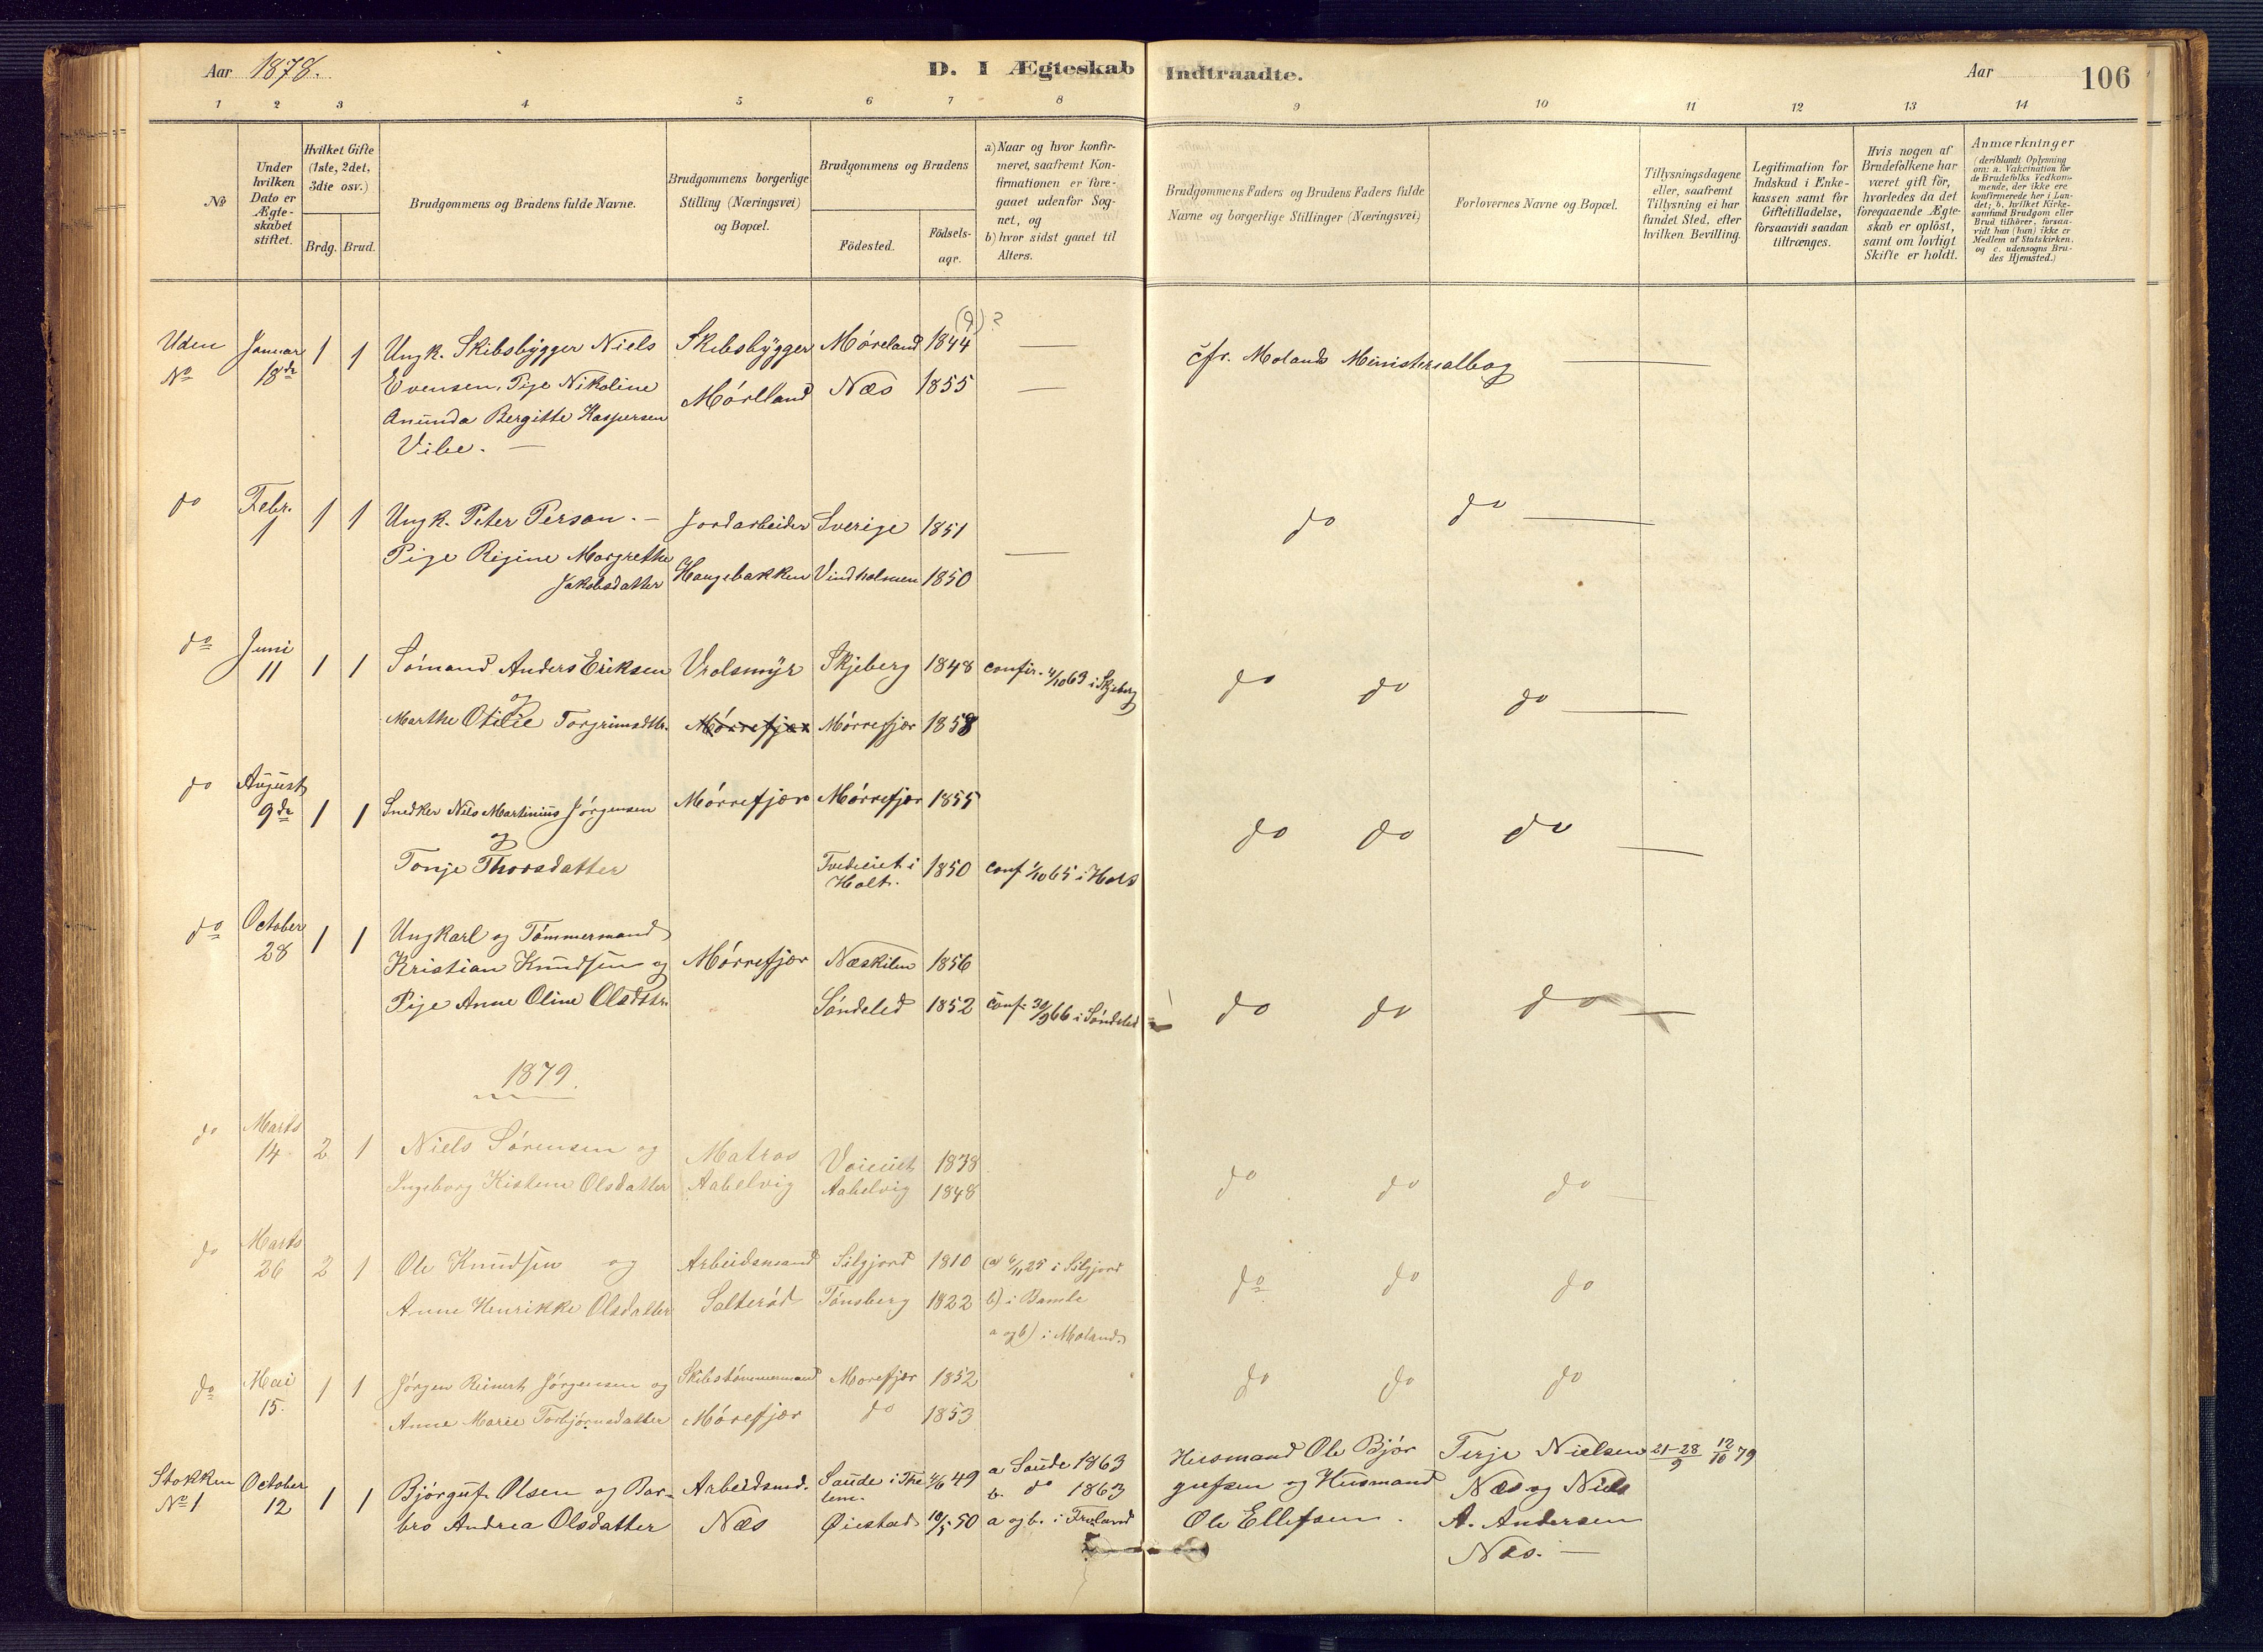 Aar 1878.
D. I Ægteskab Indtraadte.
Aar
106
1 2 3 4 5 6 7 8 9 10 11 12 13 14
No
Under hvilken Dato er Ægte-skabet stiftet.
Hvilket Gifte (1ste, 2det, 3die osv.)
Brdg. Brud.
Brudgommens og Brudens fulde Navne.
Brudgommens borgerlige Stilling (Næringsvei) og Bopæl.
Brudgommens og Brudens
Födested.
Födsels-aar.
a) Naar og hvor konfir-
meret, saafremt Kon-
firmationen er fore-
gaaet udenfor Sog-
net, og
b) hvor sidst gaaet til
Alters.
Brudgommens Faders og Brudens Faders fulde
Navne og borgerlige Stillinger (Næringsvei)
Forlovernes Navne og Bopæl.
Tillysningsdagene
eller, saafremt
Tillysning ei har
fundet Sted, efter
hvilken Bevilling.
Legitimation for
Indskud i Enke-
kassen samt for
Giftetilladelse,
forsaavidt saadan
tiltrænges.
Hvis nogen af
Brudefolkene har
været gift för,
hvorledes da det
foregaaende Ægte-
skab er oplöst,
samt om lovligt
Skifte er holdt.
Anmærkninger
(deriblandt Oplysning
om: a. Vakcination for
de Brudefolks Vedkom-
mende, der ikke ere
konfirmerede her i Lan-
det; b. hvilket Kirke-
samfund Brudgom eller
Brud tilhörer, forsaa-
vidt han (hun) ikke er
Medlem af Statskirken,
og c. udensogns Bru-
des Hjemsted.)
(9)?
Uden Januar 1 1 Ungk. Skibsbygger Niels Skibsbygger Møreland 1844 —
No 18de Evensen, Pige Nikoline Mørlland Næs 1855 —
Anunda Bergitte Kaspersen
Vibe. —
cfr. Molands Ministerialbog —
do Febr. 1 1 Ungk. Peter Person. — Jordarbeider Sverige 1851 do do —
1 Pige Regine Margrethe —
Jakobsdatter Haugebakken Vindholmen 1850
do Juni 1 1 Sømand Anders Eriksen Vrolsmyr Skjeberg 1848 confir. 4/10 63 i Skjeberg do do do —
11 og
Marthe Otilie Torgrimsdttr. Mørrefjær Mørrefjær 1858
do August 1 1 Snedker Niels Martinius Jørgensen Mørrefjær Mørrefjær 1855 do do do —
9de og
Tonje Thorsdatter Tvedeiet i Holt. 1850 conf 1/10 65 i Holt
do October 1 1 Ungkarl og Tømmermand
28 Kristian Knudsen og Mørrefjær Næskilen 1856
Pige Anne Oline Olsdttr. Søndeled 1852 conf. 30/9 66 i Søndeled do do do —
1879.
do Marts 2 1 Niels Sørensen og Matros Voieiet 1838 do do do
14 Ingeborg Kistene Olsdatter Aabelvig Aabelvig 1848
do Marts 2 1 Ole Knudsen og Arbeidsmand Silgjord 1810 (a) 6/11 25 i Silgjord do do do
26 Anne Henrikke Olsdatter Salterød Tønsberg 1822 b) i Bamle
a og b) i Moland.
do Mai 1 1 Jørgen Reinert Jørgensen og Skibstømmermand Morefjær 1852 do do do
15. Anne Marie Torbjørnsdatter Mørefjær do 1853
Stokken October 1 1 Bjørguf Olsen og Bar- Arbeidsmd. Saude i The- 4/6 49 a Saude 1863 Husmand Ole Bjør Terje Nielsen 21-28/9 12/10 79
No 1 12 lem. b. do 1863 gufsen og Husmand Næs og Niels
bro Andrea Olsdatter Næs Øiestad 10/5 50 a og b. i Froland Ole Ellefsen. A. Andersen
Næs. —